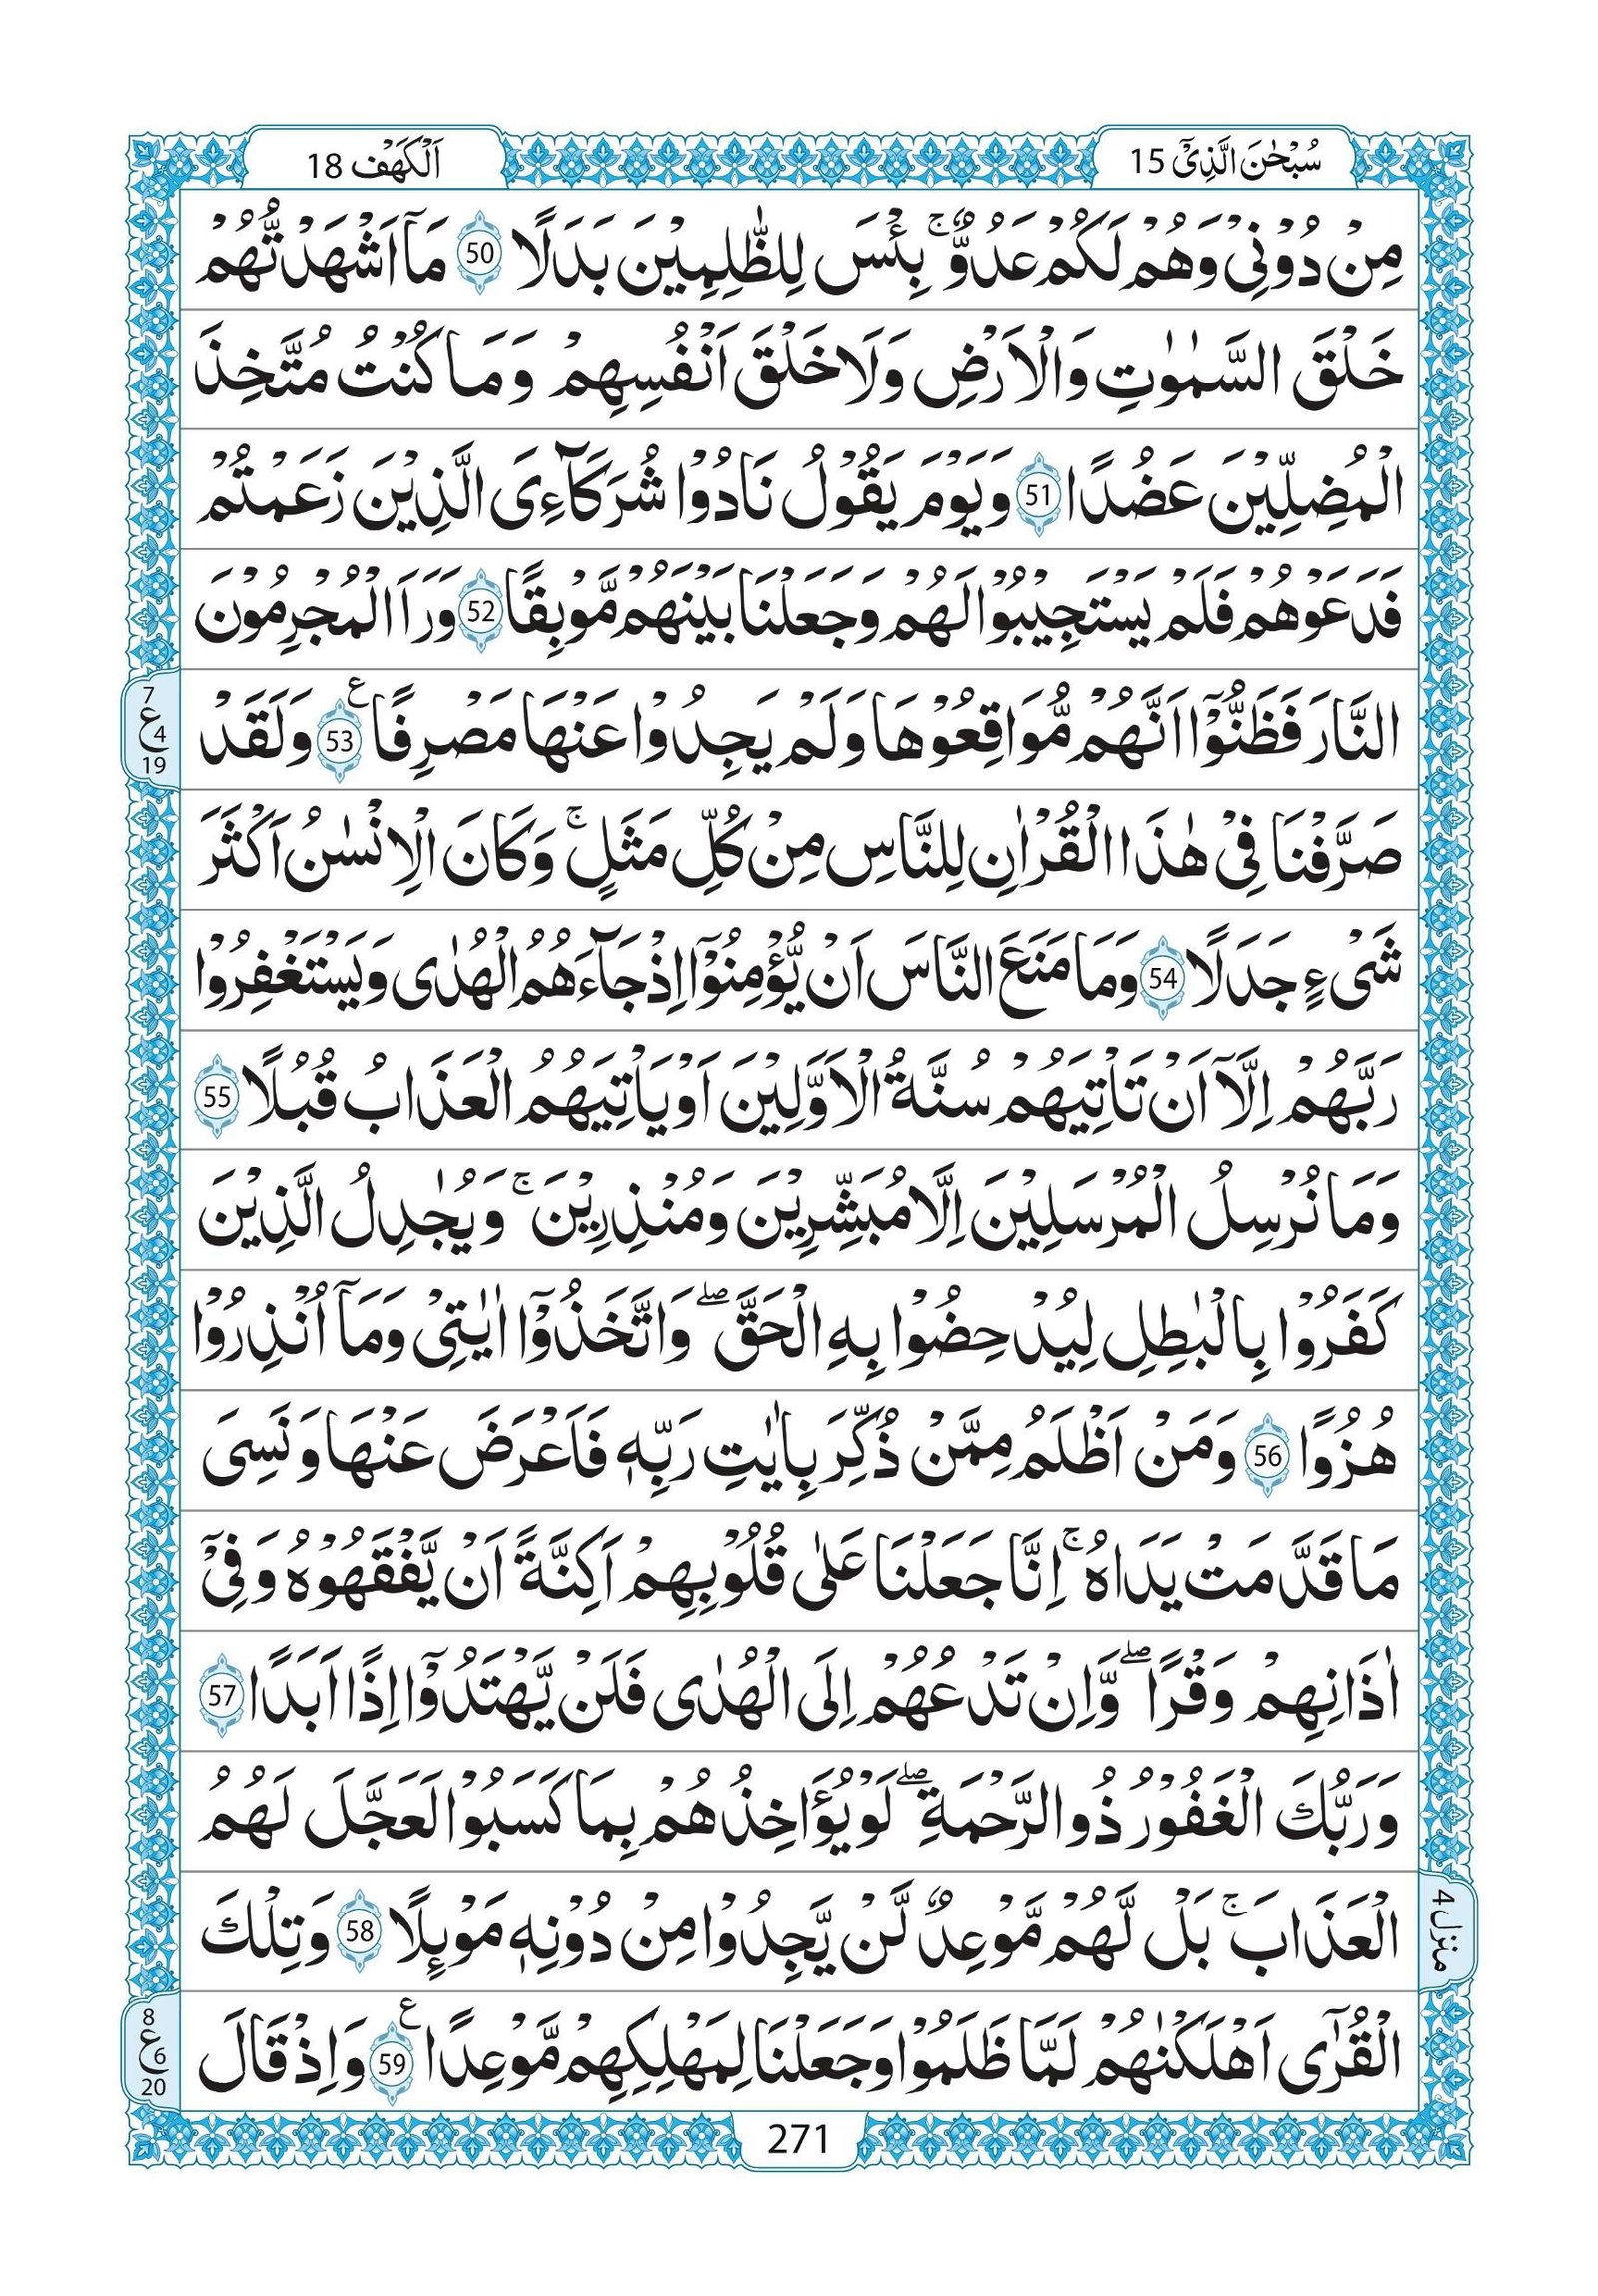 سُبْحٰنَ الَّذِیْۤ 15
اَلْكَهْف 18
مِنْ دُوْنِیْ وَهُمْ لَكُمْ عَدُوٌّ ۚ بِئْسَ لِلظّٰلِمِیْنَ بَدَلًا 50 مَاۤ اَشْهَدْتُّهُمْ
خَلْقَ السَّمٰوٰتِ وَالْاَرْضِ وَلَا خَلْقَ اَنْفُسِهِمْ وَمَا كُنْتُ مُتَّخِذَ
الْمُضِلِّیْنَ عَضُدًا 51 وَیَوْمَ یَقُوْلُ نَادُوْا شُرَكَآءِیَ الَّذِیْنَ زَعَمْتُمْ
فَدَعَوْهُمْ فَلَمْ یَسْتَجِیْبُوْا لَهُمْ وَجَعَلْنَا بَیْنَهُمْ مَّوْبِقًا 52 وَرَاَ الْمُجْرِمُوْنَ
النَّارَ فَظَنُّوْۤا اَنَّهُمْ مُّوَاقِعُوْهَا وَلَمْ یَجِدُوْا عَنْهَا مَصْرِفًا ع 53 وَلَقَدْ
7
ع 4
19
صَرَّفْنَا فِیْ هٰذَا الْقُرْاٰنِ لِلنَّاسِ مِنْ كُلِّ مَثَلٍ ۚ وَكَانَ الْاِنْسٰنُ اَكْثَرَ
شَیْءٍ جَدَلًا 54 وَمَا مَنَعَ النَّاسَ اَنْ یُّؤْمِنُوْۤا اِذْ جَآءَهُمُ الْهُدٰی وَیَسْتَغْفِرُوْا
رَبَّهُمْ اِلَّاۤ اَنْ تَاْتِیَهُمْ سُنَّةُ الْاَوَّلِیْنَ اَوْ یَاْتِیَهُمُ الْعَذَابُ قُبُلًا 55
وَمَا نُرْسِلُ الْمُرْسَلِیْنَ اِلَّا مُبَشِّرِیْنَ وَمُنْذِرِیْنَ ۚ وَیُجٰدِلُ الَّذِیْنَ
كَفَرُوْا بِالْبٰطِلِ لِیُدْحِضُوْا بِهِ الْحَقَّ ۖ وَاتَّخَذُوْۤا اٰیٰتِیْ وَمَاۤ اُنْذِرُوْا
هُزُوًا 56 وَمَنْ اَظْلَمُ مِمَّنْ ذُكِّرَ بِاٰیٰتِ رَبِّهٖ فَاَعْرَضَ عَنْهَا وَنَسِیَ
مَا قَدَّمَتْ یَدَاهُ ۚ اِنَّا جَعَلْنَا عَلٰی قُلُوْبِهِمْ اَكِنَّةً اَنْ یَّفْقَهُوْهُ وَفِیْۤ
اٰذَانِهِمْ وَقْرًا ۖ وَّاِنْ تَدْعُهُمْ اِلَی الْهُدٰی فَلَنْ یَّهْتَدُوْۤا اِذًا اَبَدًا 57
وَرَبُّكَ الْغَفُوْرُ ذُو الرَّحْمَةِ ۖ لَوْ یُؤَاخِذُهُمْ بِمَا كَسَبُوْا لَعَجَّلَ لَهُمُ
الْعَذَابَ ۚ بَلْ لَّهُمْ مَّوْعِدٌ لَّنْ یَّجِدُوْا مِنْ دُوْنِهٖ مَوْىِٕلًا 58 وَتِلْكَ
منزل 4
الْقُرٰۤی اَهْلَكْنٰهُمْ لَمَّا ظَلَمُوْا وَجَعَلْنَا لِمَهْلِكِهِمْ مَّوْعِدًا ع 59 وَاِذْ قَالَ
8
ع 6
20
271